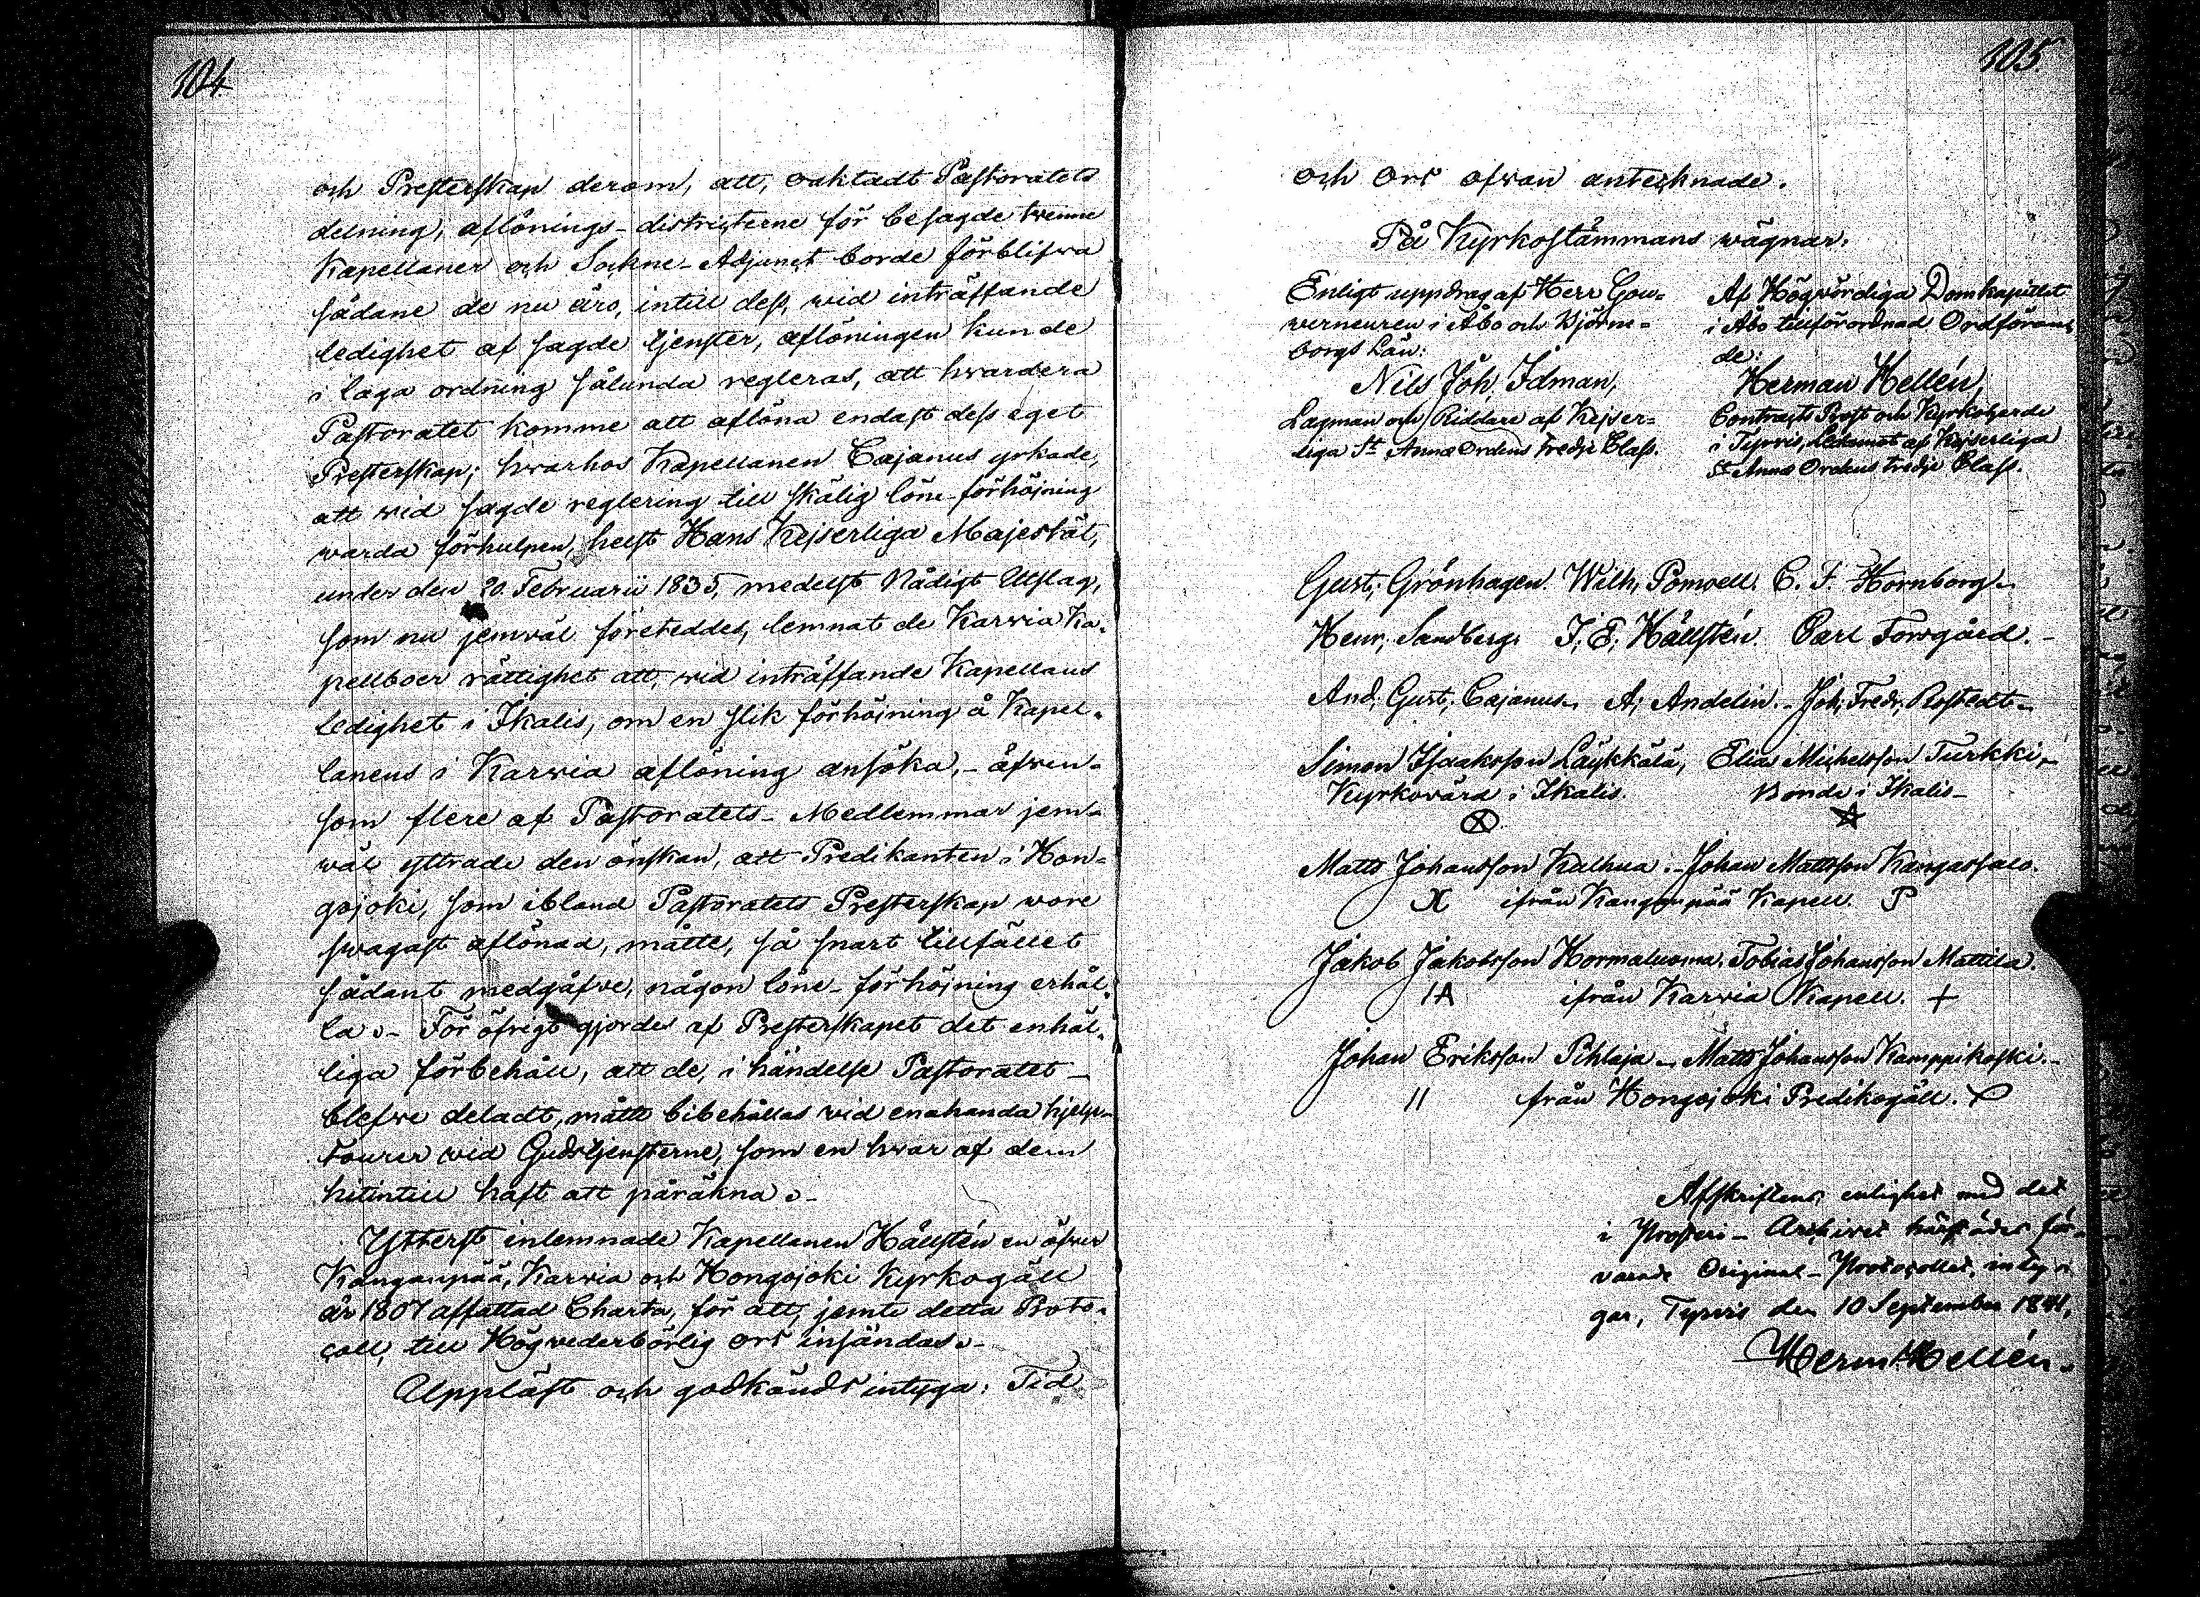 104
och Presterskap derom, att, oaktadt Pastoratets
delning, aflönings-districterne för besagde twenne
Kapellaner och Sockne-Adjunct borde förblifwa
sådane de nu äro, intill dess, wid inträffande
ledighet af sagde tjenster, aflöningen kunde
i laga ordning sålunda regleras, att hwardera
Pastoratet komme att aflöna endast dess eget
Presterskap; hwarhos Kapellanen Cajanus yrkade,
att wid sagde reglering till skälig löne-förhöjning
warda förhulpen, helst Hans Kejserliga Majestät,
under den 20. Februarii 1835, medelst Nådigt Utslag,
som nu jemwäl företeddes, lemnat de Karvia Ka-
pellboer rättighet att, wid inträffande Kapellans
ledighet i Ikalis, om en slik förhöjning å Kapel-
lanens i Karvia aflöning ansöka, - äfwen-
som flere af Pastoratets Medlemmar jem-
wäl yttrade den önskan, att Predikanten i Hon-
gojoki, som ibland Pastoratets Presterskap wore
swagast aflönad, måtte, så snart tillfället
sådant medgåfwe, någon löne-förhöjning erhål-
la. - För öfrigt gjordes af Presterskapet det enhäl-
liga förbehåll, att de, i händelse Pastoratet
blefwe deladt, måtte bibehållas wid enahanda hjelp-
tourer wid Gudstjensterne, som en hwar af dem
hitintill haft att påräkna. -
Ytterst inlemnade Kapellanen Hällstén en öfwer
Kangaanpää, Karvia och Hongojoki Kyrkogäll
år 1807 affattad Charta, för att, jemte detta Proto-
coll, till Högwederbörlig ort insändas. -
Uppläst och godkändt intyga; Tid
105.
och Ort ofwan antecknade.
På Kyrkostämmans wägnar:
Enligt uppdrag af Herr Gou-
verneuren i Åbo och Björne-
borgs Län:
Nils Joh; Idman,
Lagman och Riddare af Kejser-
liga St Annæ Ordens tredje Class.
Af Högvördiga Domkapitlet
i Åbo tillförordnad Ordföran-
de:
Herman Hellén,
Contracts Prost och Kyrkoherde
i Tyrvis, Ledamot af Kejserliga
St Annæ Ordens tredje Class.
Gust; Grönhagen. Wilh; Pomoell. C. F. Hornborg.
Henr; Sandberg. J; E; Hällstén. Carl Forsgård. -
And; Gust; Cajanus. A; Andelin. - Joh; Fredr; Rostedt.
Simon Isaaksson Läykkälä, Elias Michelsson Turkki,
Kyrkovärd i Ikalis. Bonde i Ikalis
Matts Johansson Kalhua. - Johan Mattsson Kangassalo.
X ifrån Kanganpää Kapell. P
Jakob Jakobsson Hormaluoma. Tobias Johansson Mattila.
IA ifrån Karvia Kapell. +
Johan Eriksson Pihlaja. Matts Johansson Kamppikoski. -
II från Hongojoki Predikogäll.
Afskriftens enlighet med det
i Prosteri-Archivet härstädes för-
varade Original-Protocollet, inty-
gar, Tyrvis den 10 September 1841,
Herm Hellén.